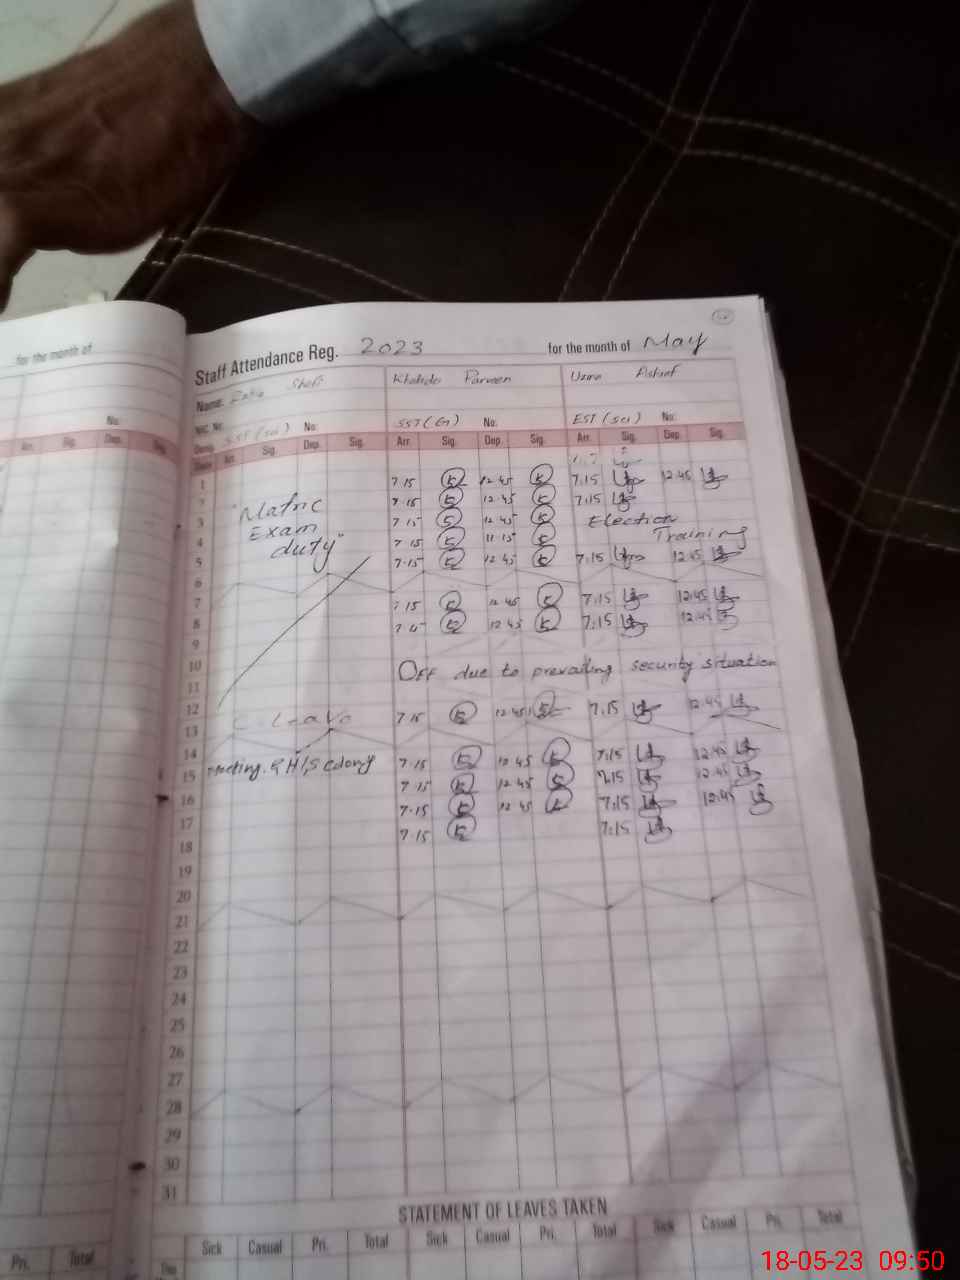 for the month of
Staff Attendance Reg. 2023 for the month of May
Name: Shafi Khalida Parveen Uzma Ashraf
NIC No:
No: SST (sci) No: SST (G) No: EST (sci) No:
Arr. Sig. Dep. Sig. Arr. Sig. Dep. Sig. Arr. Sig. Dep. Sig. Arr. Sig. Dep. Sig.
Date
1 7.15 12.45 7.15 12.45
2 "Matric 7.15 12.45 7.15
3 Exam 7.15 12.45 Election
4 duty" 7.15 11.15 Training
5 7.15 12.45 7.15 12.45
6
7 7.15 12.45 7.15 12.45
8 12.45 7.15 12.45
9
10 Off due to prevailing security situation
11
12 C. Leave 7.15 12.45 7.15 12.45
13
14
15 Meeting. 7.15 12.45 7.15 12.45
16 7.15 12.45 7.15 12.45
17 7.15 12.45 7.15 12.45
18 7.15 7.15
19
20
21
22
23
24
25
26
27
28
29
30
31
STATEMENT OF LEAVES TAKEN
Pri. Total Sick Casual Pri. Total Sick Casual Pri. Total Sick Casual Pri. Total
18-05-23 09:50